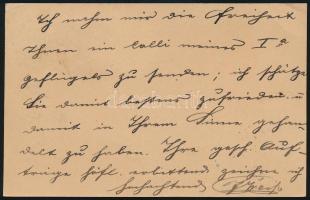 Ich nehm mir die Freiheit
Ihnen ein Colli meines Iª
geflügels zu senden; ich schätze
Sie damit bestens zufrieden u
damit in Ihrem Sinne gehan-
delt zu haben. Ihre gesch. Auf-
träge höfl. erbittend zeichne ich
hochachtend